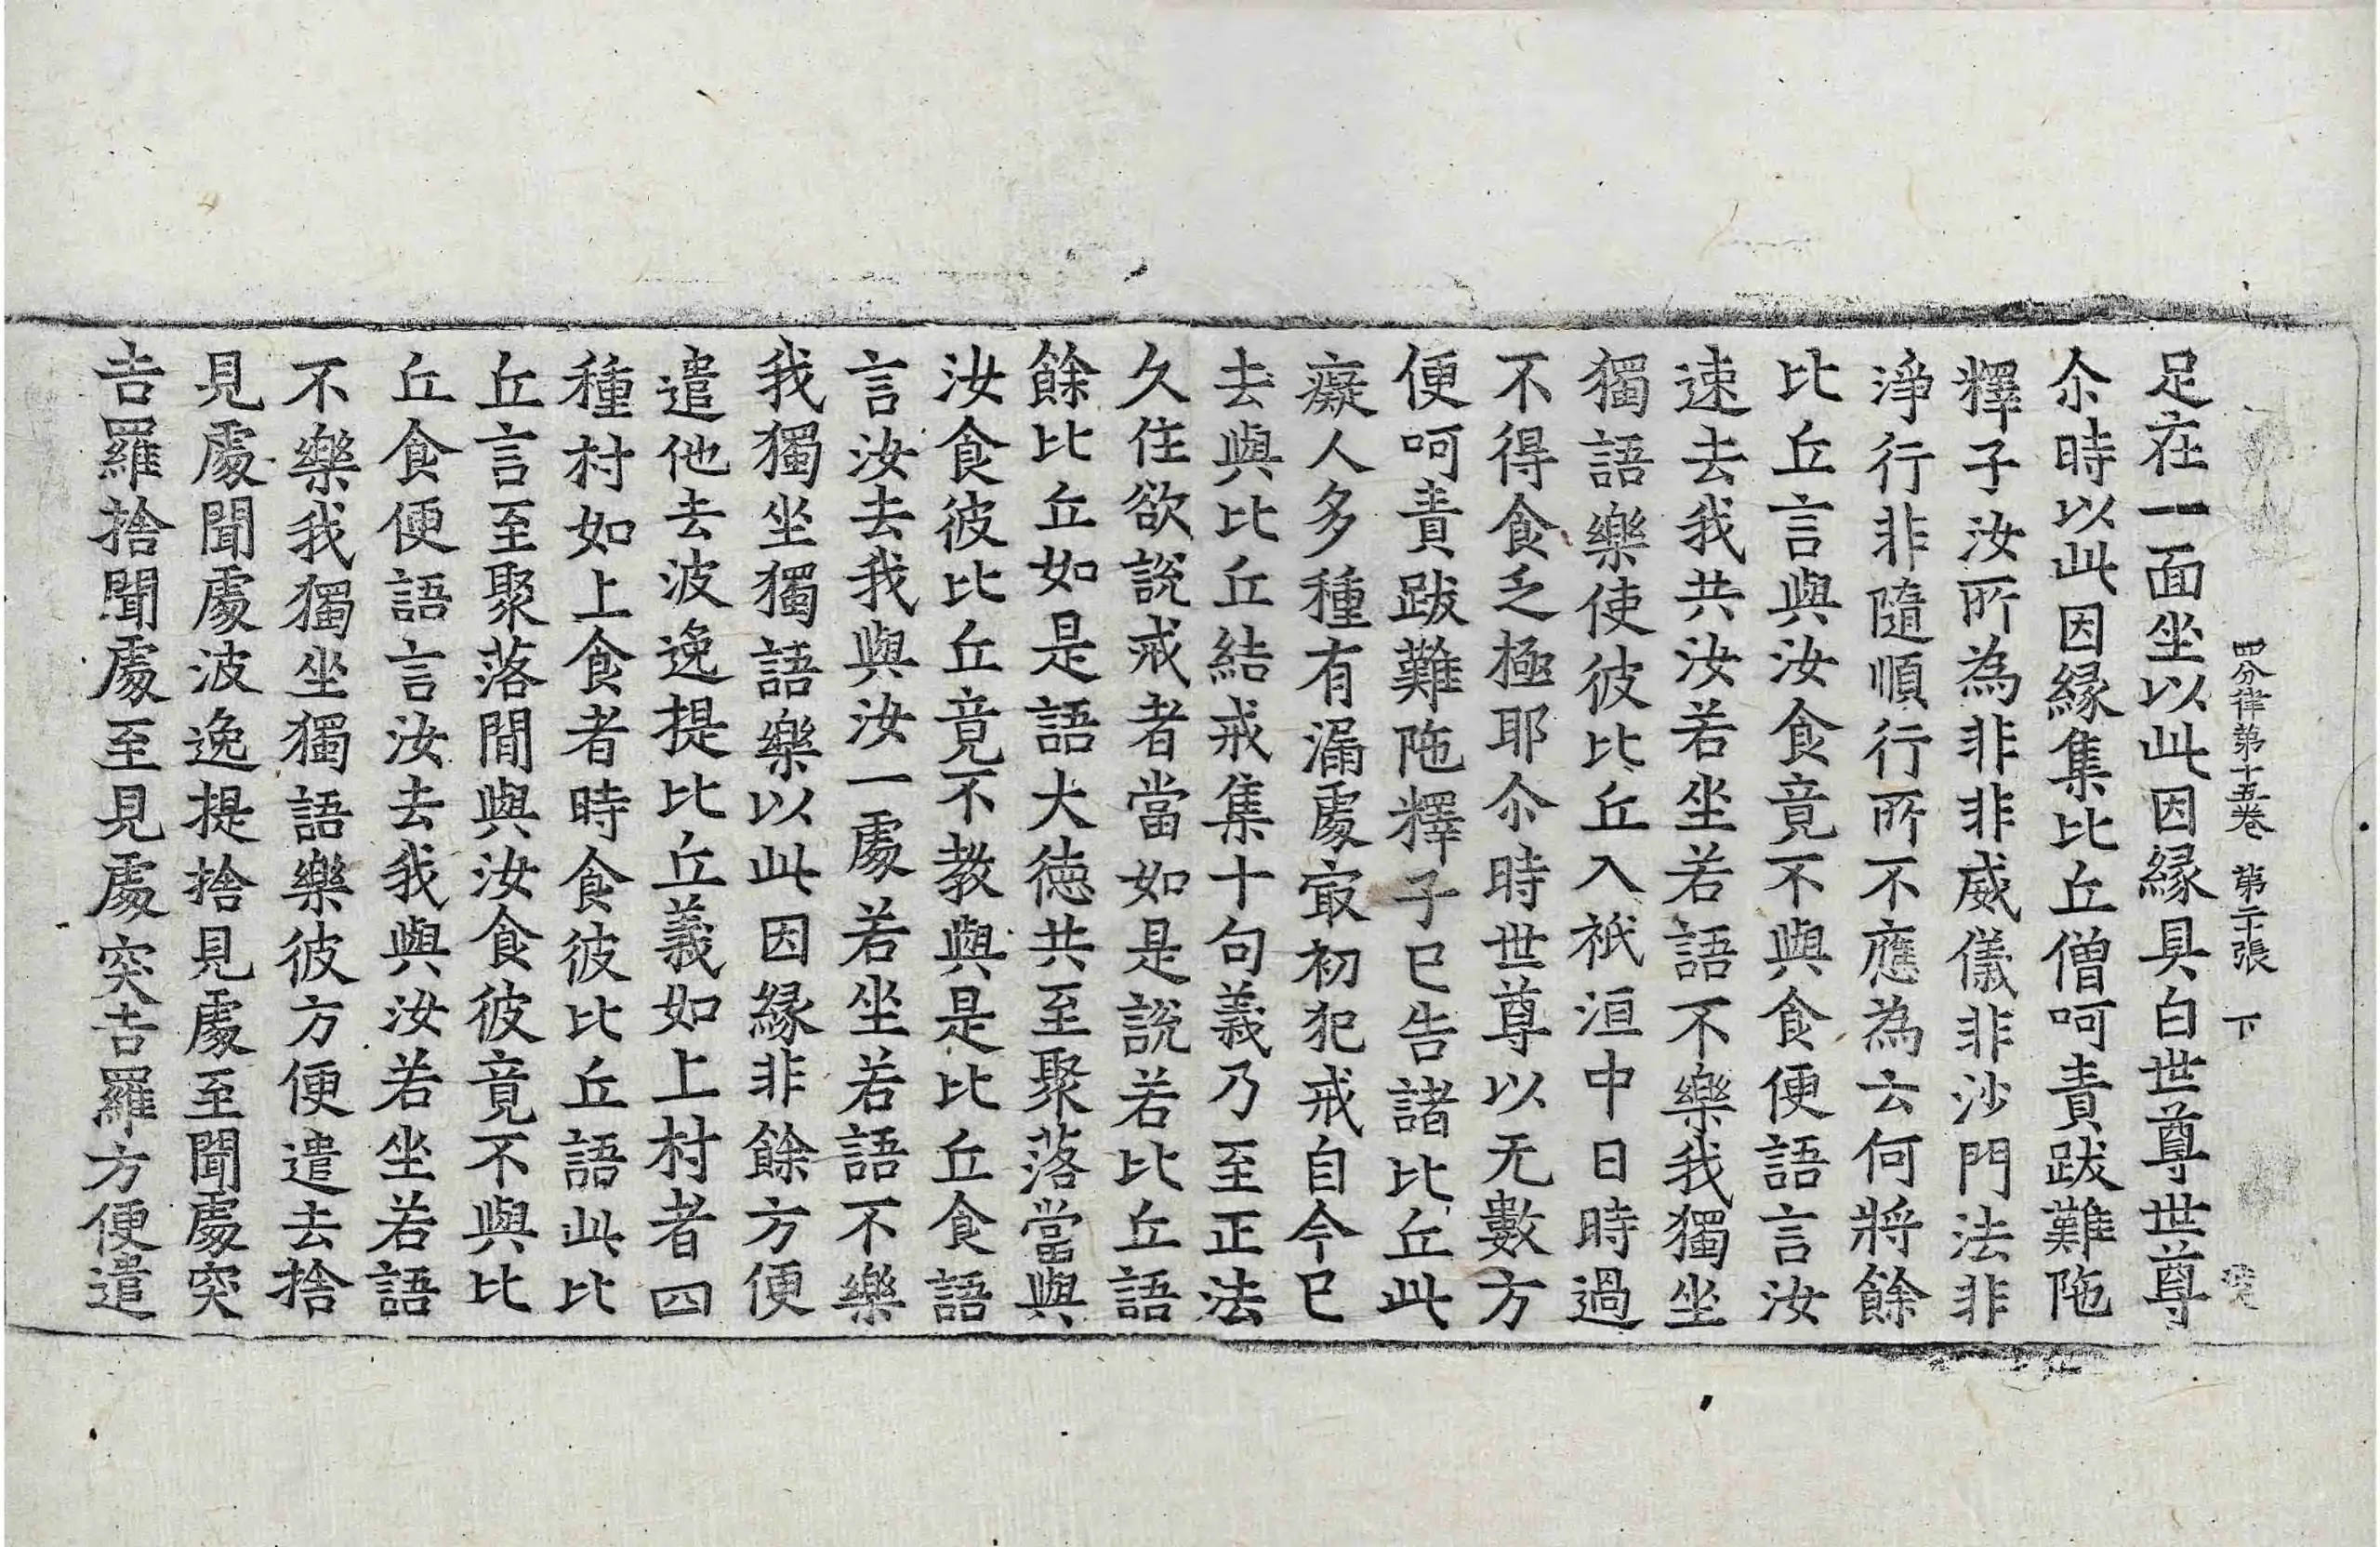 四分律第十五卷 第二十張 下
足在一面坐以此因縁具白世尊世尊
尒時以此因縁集比丘僧呵責跋難陁
釋子汝所為非非威儀非沙門法非
淨行非隨順行所不應為云何將餘
比丘言與汝食竟不與食便語言汝
速去我共汝若坐若語不樂我獨坐
獨語樂使彼比丘入祇洹中日時過
不得食乏極耶尒時世尊以无數方
便呵責跋難陁釋子已告諸比丘此
癡人多種有漏處冣初犯戒自今已
去與比丘結戒集十句義乃至正法
久住欲說戒者當如是說若比丘語
餘比丘如是語大徳共至聚落當與
汝食彼比丘竟不教與是比丘食語
言汝去我與汝一處若坐若語不樂
我獨坐獨語樂以此因縁非餘方便
遣他去波逸提比丘義如上村者四
種村如上食者時食彼比丘語此比
丘言至聚落閒與汝食彼竟不與比
丘食便語言汝去我與汝若坐若語
不樂我獨坐獨語樂彼方便遣去捨
見處聞處波逸提捨見處至聞處突
吉羅捨聞處至見處突吉羅方便遣